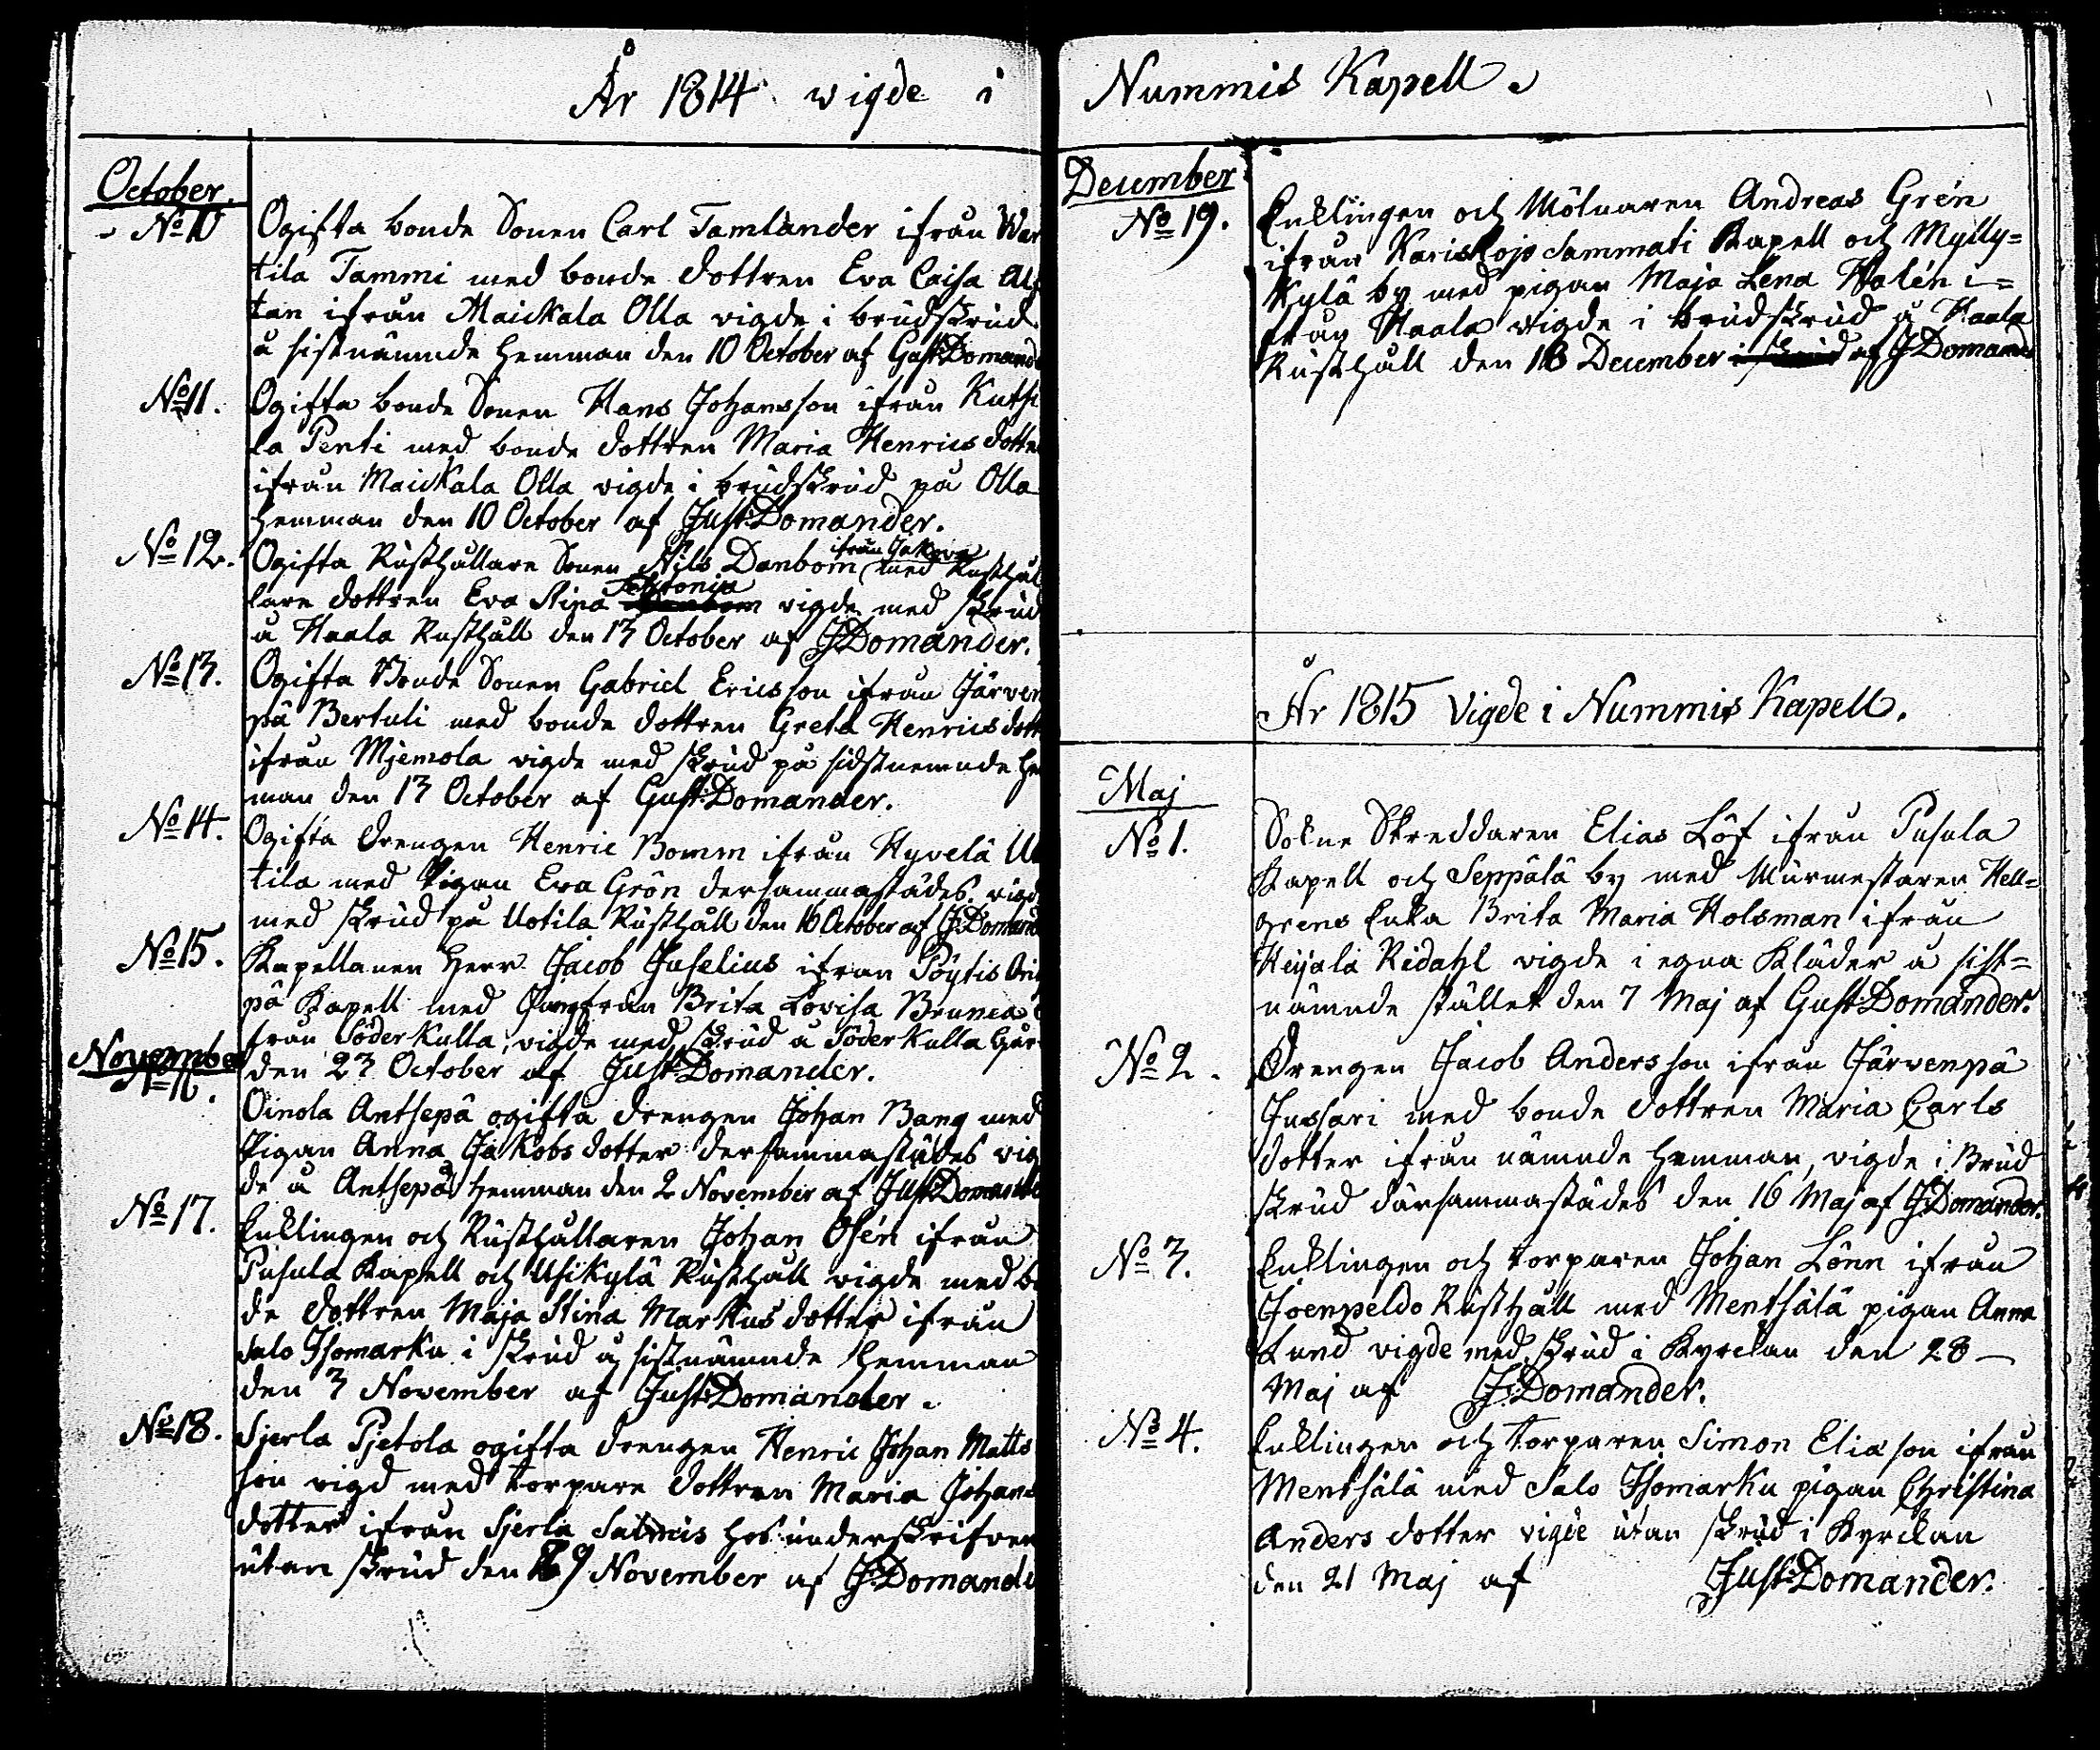 År 1814 vigde i
October.
No 10 Ogifta bonde Sonen Carl Tamlander ifrån War
tila Tammi med bonde dottren Eva Caisa Al
tan ifrån Maickala Olla vigde i brudskrud
å sistnämde hemman den 10 October af Gust: Domand
No 11. Ogifta bonde Sonen Hans Johansson ifrån Kuthi
la Penti med bonde dottren Maria Henrics dotte
ifrån Maickala Olla vigde i brudskrud på Olla
hemman den 10 October af Gust: Domander.
ifrån Jakova
No 12. Ogifta Rusthållare Sonen Nils Danbom med Rusthål
Fehtonia
lare dottren Eva Stina vigde med skrud
å Haala Rusthåll den 13 October af G: Domander.
No 13. Ogifta Bonde Sonen Gabriel Ericsson ifrån Järven
pä Bertuli med bonde dottren Greta Henrics dott
ifrån Mjemola vigde med skrud på sidstnemnde he
man den 13 October af Gust: Domander.
No 14. Ogifta drengen Henric Bomm ifrån Hyvelä Uo
tila med Pigan Eva Grön dersammastädes, vigd
med skrud på Uotila Rusthåll den 16 October af G: Domand
No 15. Kapellanen Herr Jacob Juselius ifrån Pöytis Ori
pä Kapell med Jungfrun Brita Lovisa Brunea
från Söderkulla, vigde med skrud å Söderkulla Går
den 23 October af Gust: Domander.
November
No 16. Oinola Antsepä ogifta drengen Johan Bang med
Pigan Anna Jakobs dotter dersammastädes vig
de å Antsepä hemman den 2 November af Gust: Domande
No 17. Enklingen och Rusthållaren Johan Osén ifrån
Pusula Kapell och Uhikylä Rusthåll vigde med bo
de dottren Maja Stina Markus dotter ifrån
Salo Isomarku i skrud å sistnämnde Hemman
den 3 November af Gust: Domander.
No 18. Sjerla Pjetola ogifta drengen Henric Johan Matts
son vigd med torpare dottren Maria Johans
dotter ifrån Sjerla Salmis hos underskrifven
utan skrud den 29 November af G: Domande
Nummis Kapell.
December
No 19. Enklingen och Mölnaren Andreas Grén
ifrån Karislojo Sammati Kapell och Mylly=
kylä by med pigan Maja Lena Walén i=
från Haala vigde i brudskrud å Haala
Rusthåll den 18 December i skrud af G Domand
År 1815 Vigde i Nummis Kapell.
Maj
No 1. Sokne Skreddaren Elias Löf ifrån Pusula
Kapell och Seppälä by med Murmestaren Hell=
grens Enka Brita Maria Holsman ifrån
Heijala Ridahl vigde i egna Kläder å sist=
nämnde stället den 7 Maj af Gust: Domander.
No 2. Drengen Jacob Andersson ifrån Järvenpä
Jussari med bonde dottren Maria Carls
dotter ifrån nämnde hemman, vigde i Brud
skrud därsammastädes den 16 Maj af G: Domander.
No 3. Enklingen och torparen Johan Lönn ifrån
Joenpeldo Rusthåll med Menthälä pigan Anna
Lund vigde med skrud i Kyrckan den 28 –
Maj af G: Domander.
No 4. Enklingen och torparen Simon Eliason ifrån
Menthälä med Salo Isomarku pigan Christina
Anders dotter vigde utan skrud i Kyrckan
den 21 Maj af Gust: Domander.